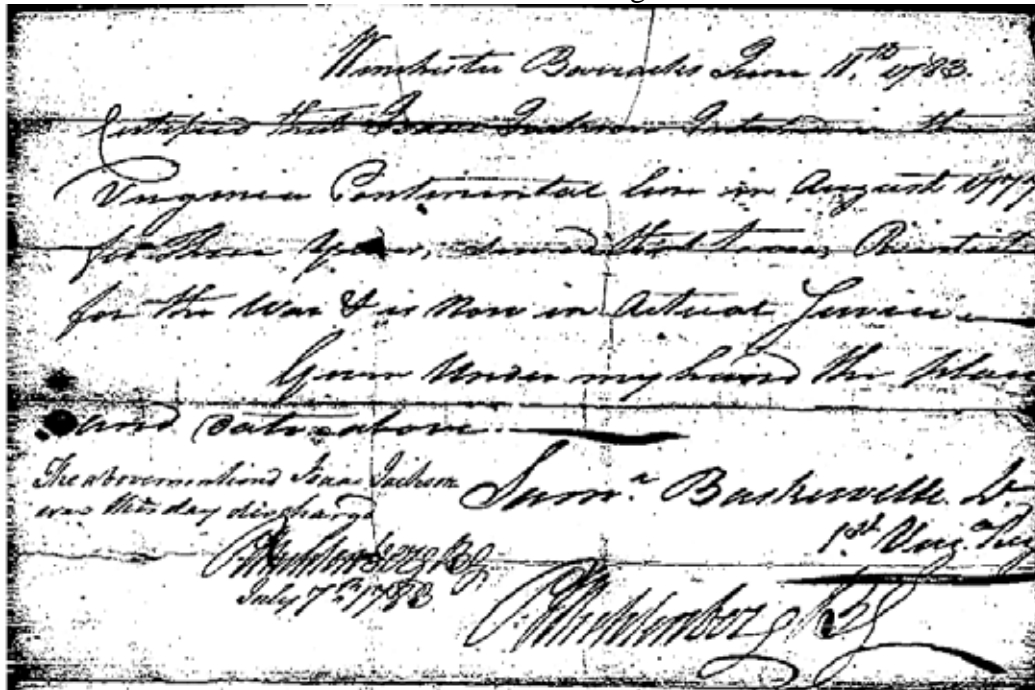 Winchester Barracks June 11.th 1783.
Certified that Isaac Jackson Inlisted in the
Virginia Continental line in August 177
for three years, served that time, Reinlisted
for the War & is Now in Actual Service
Given Under my hand the place
and date above.
Sam.l Baskerville Lt
1st Virg.a Reg
The abovementiond Isaac Jackson
was this day dischargd
P. Muhlenberg BG
July 7th 1783
P. Muhlenberg BG